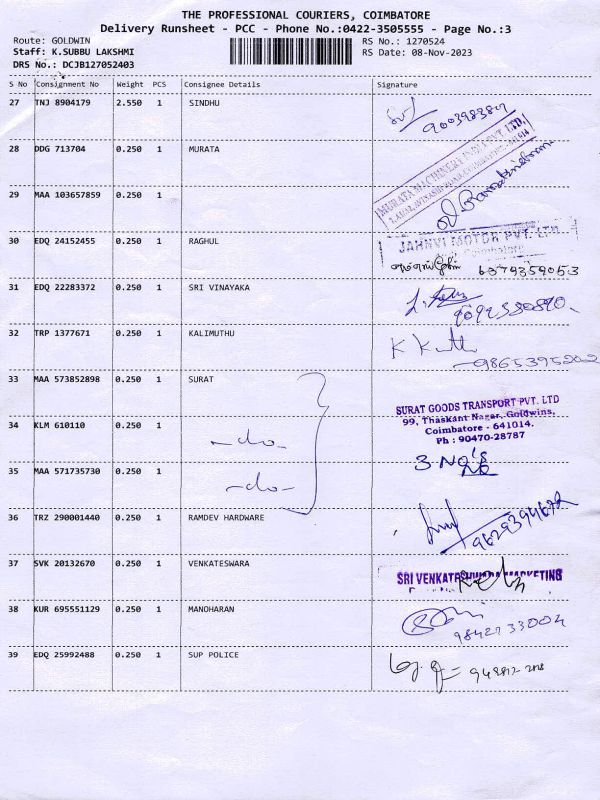 THE PROFESSIONAL COURIERS, COIMBATORE
Delivery Runsheet - PCC - Phone No.:0422-3505555 - Page No.:3
Route: GOLDWIN
RS No.: 1270524
Staff: K.SUBBU LAKSHMI
RS Date: 08-Nov-2023
DRS No.: DCJB127052403
S No Consignment No Weight PCS Consignee Details Signature
27 TNJ 8904179 2.550 1 SINDHU
28 DDG 713704 0.250 1 MURATA
MURATA MACHINERY INDIA PVT. LTD.
29 MAA 103657859 0.250 1
30 EDQ 24152455 0.250 1 RAGHUL
JAHNVI MOTOR PVT. LTD
Coimbatore
6379359053
31 EDQ 22283372 0.250 1 SRI VINAYAKA
32 TRP 1377671 0.250 1 KALIMUTHU
9865395202
33 MAA 573852898 0.250 1 SURAT
SURAT GOODS TRANSPORT PVT. LTD
99, Thaskant Nagar, Goldwins,
Coimbatore - 641014.
Ph : 90470-28787
34 KLM 610110 0.250 1 -do-
3 No's
35 MAA 571735730 0.250 1 -do-
36 TRZ 290001440 0.250 1 RAMDEV HARDWARE
9629394672
37 SVK 20132670 0.250 1 VENKATESWARA
SRI VENKATESHWARA MARKETING
38 KUR 695551129 0.250 1 MANOHARAN
9842733004
39 EDQ 25992488 0.250 1 SUP POLICE